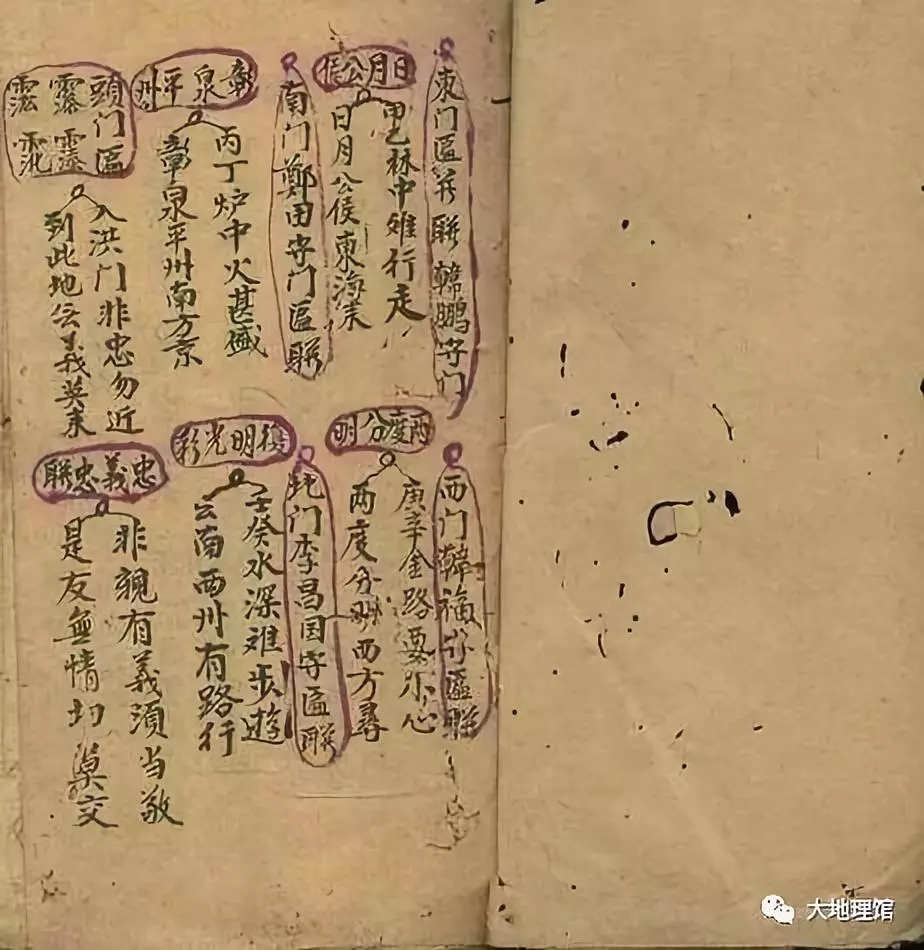 東门匾并聯韓鵬守门
日月公侯
甲乙林中难行走
日月公侯東海来
南门鄭田守门匾聯
彰泉平州
丙丁炉中火甚盛
彰泉平州南方京
頭门匾
入洪门非忠勿近
到此地義英来
西门韓福守匾聯
兩度分明
庚辛金路要小心
两度分明西方尋
北门李昌国守匾聯
復明光彩
壬癸水深难步遊
云南西州有路行
忠義忠聯
非親有義須当敬
是友無情切莫交
大地理馆